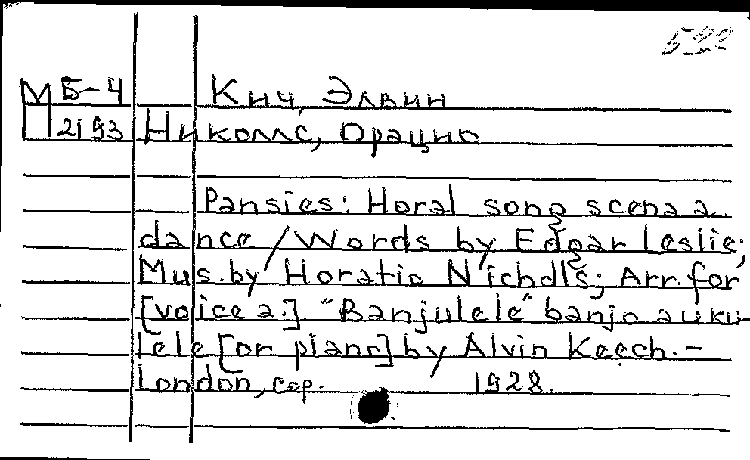 522
М Б-4
2193
Кич, Элвин
Николлс, Орацио
Pansies: Horal song scena a.
dance / Words by Edgar Leslie;
Mus. by Horatio Nicholls; Arr. for
[voice a.] "Banjulele" banjo a uku-
lele [or piano] by Alvin Keech. –
London, cop. 1928.